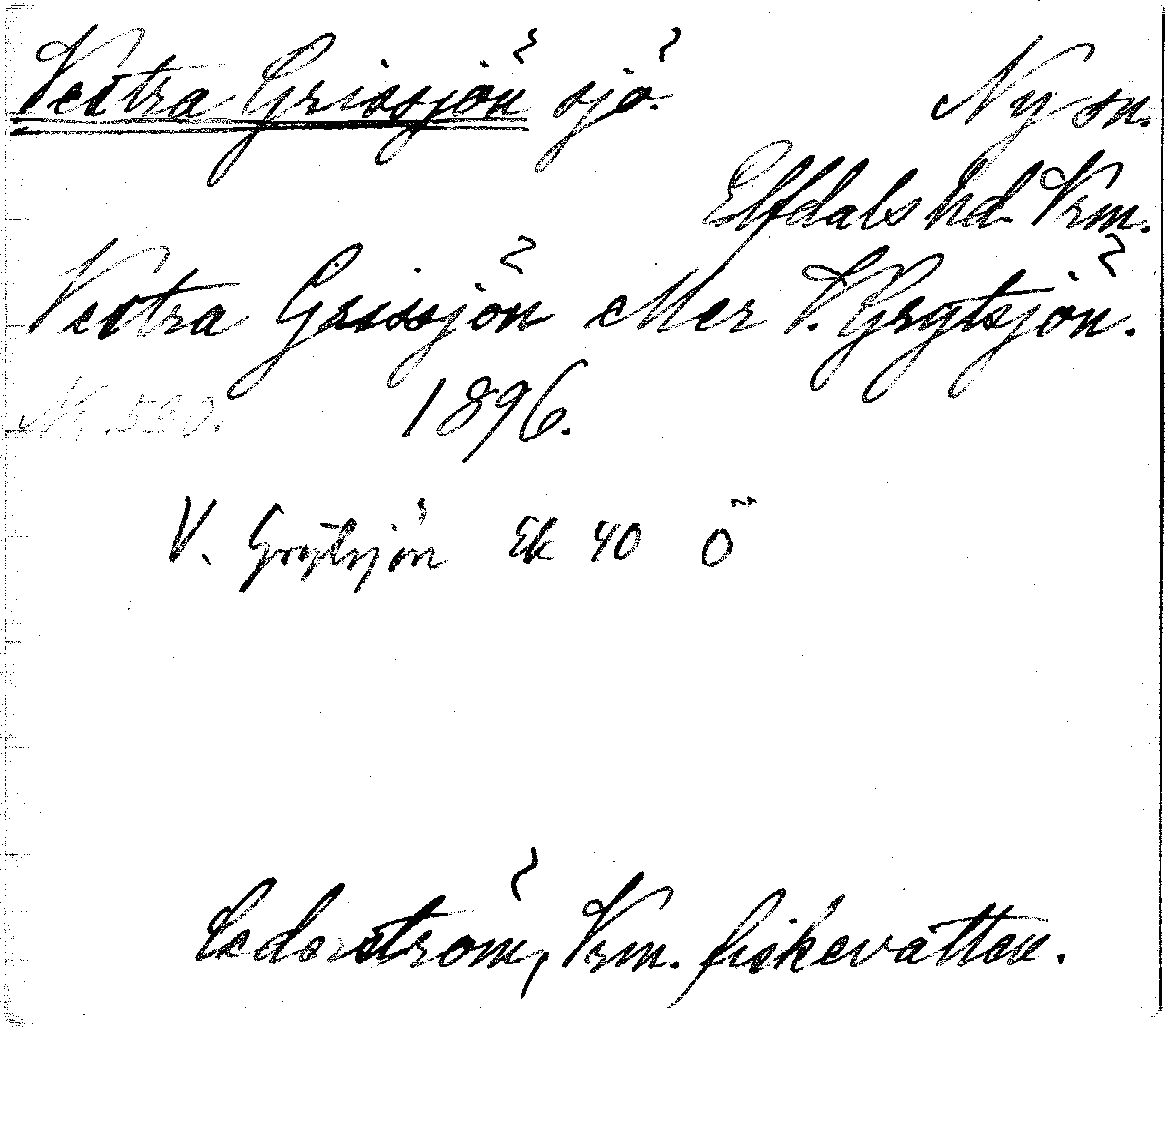 Vestra Grissjön sjö.
Ny sn.
Elfdals hd Vrm.
Vestra Grissjön eller V. Grytsjön.
N:r 590. 1896.
V. Grytsjön Ek 40 Ö
Cederström, Vrm. fiskevatten.